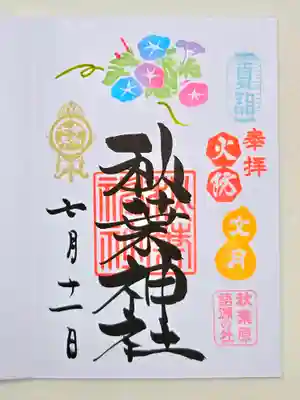 夏詣
奉拝
火伏
文月
秋葉原
語源の社
秋葉神社
七月十一日